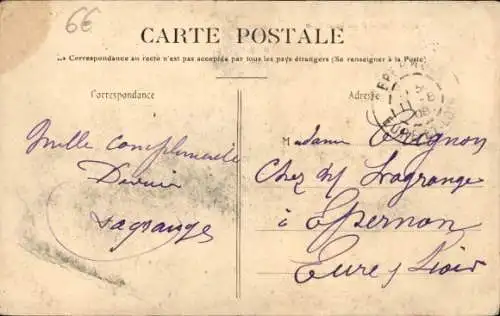 6€
CARTE POSTALE
La Correspondance au recto n'est pas acceptée par tous les pays étrangers (Se renseigner à la Poste)
Correspondance
Adresse
Mille compliments
Lagrange
Madame
Chez Mr Lagrange
à Epernon
Eure & Loir